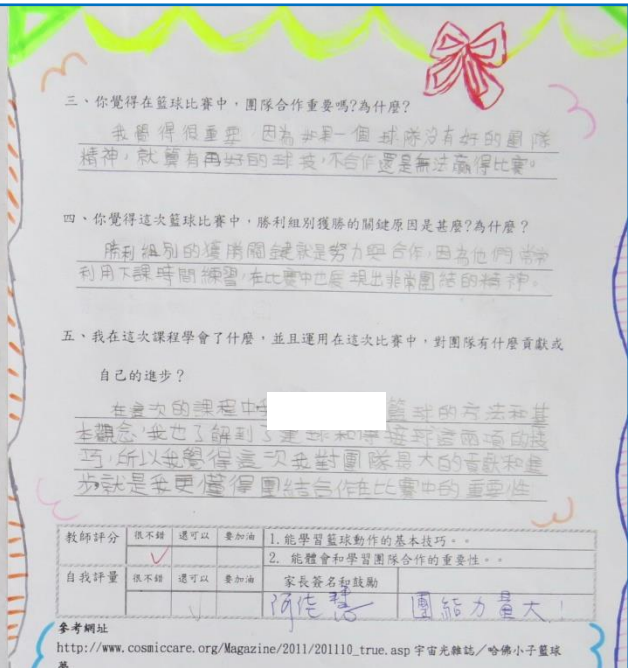 三、你覺得在籃球比賽中，團隊合作重要嗎?為什麼?
我覺得很重要，因為如果一個球隊沒有好的團隊
精神，就算有再好的球技，不合作還是無法贏得比賽。
四、你覺得這次籃球比賽中，勝利組別獲勝的關鍵原因是甚麼?為什麼?
勝利組別的獲勝關鍵就是努力與合作，因為他們常常
利用下課時間練習，在比賽中也展現出非常團結的精神。
五、我在這次課程學會了什麼，並且運用在這次比賽中，對團隊有什麼貢獻或
自己的進步？
在這次的課程中學 籃球的方法和基
本觀念，我也了解到了運球和傳接球這兩項的技
巧，所以我覺得這次我對團隊最大的貢獻和進
步就是我更懂得團結合作在比賽中的重要性
教師評分 很不錯 還可以 要加油 1.能學習籃球動作的基本技巧。。
2. 能體會和學習團隊合作的重要性。。
自我評量 很不錯 還可以 要加油 家長簽名和鼓勵
團結力量大！
參考網址
http://www.cosmiccare.org/Magazine/2011/201110_true.asp 宇宙光雜誌/哈佛小子籃球
夢